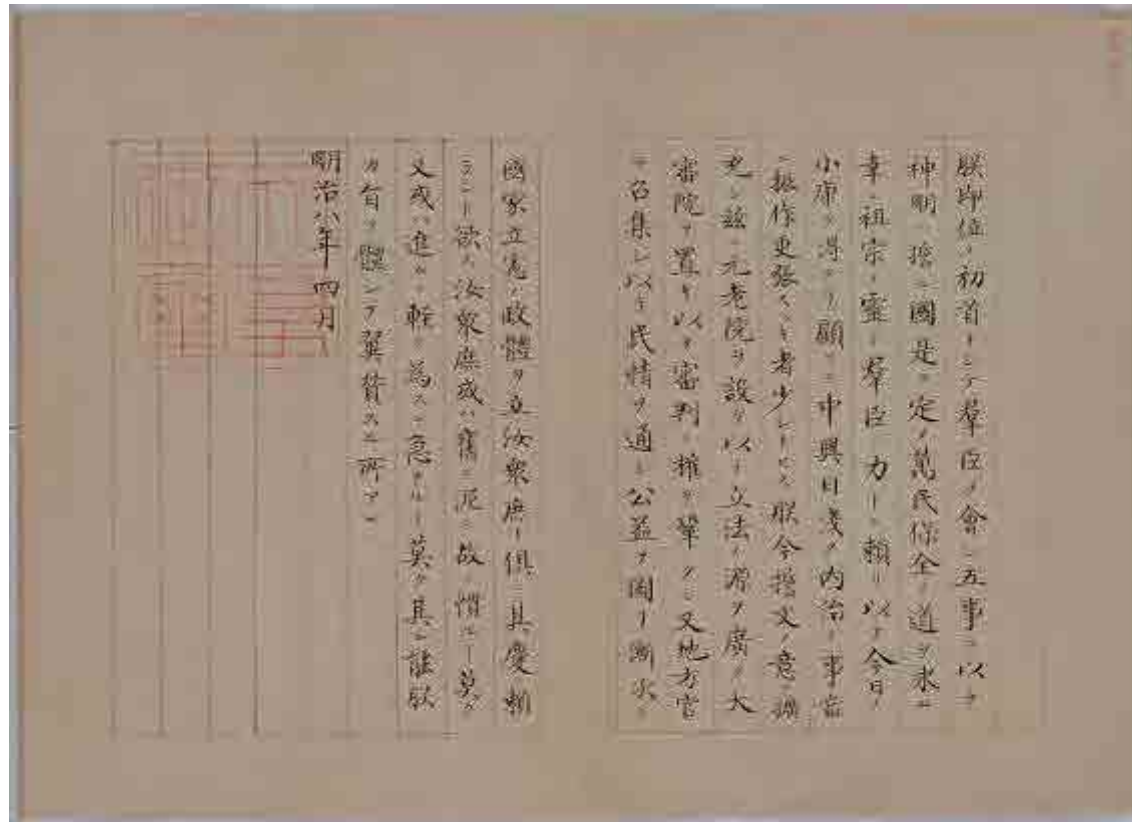 朕即位ノ初首トシテ群臣ヲ會シ五事ヲ以テ
神明ニ誓ヒ國是ヲ定メ萬民保全ノ道ヲ求ム
幸ニ祖宗ノ靈ト群臣ノ力トニ賴リ以テ今日ノ
小康ヲ得タリ顧ニ中興日淺ク内治ノ事當
ニ振作更張スヘキ者少シトセス朕今誓文ノ意ヲ擴
充シ茲ニ元老院ヲ設ケ以テ立法ノ源ヲ廣メ大
審院ヲ置キ以テ審判ノ權ヲ鞏クシ又地方官
ヲ召集シ以テ民情ヲ通シ公益ヲ圖リ漸次ニ
國家立憲ノ政體ヲ立汝衆庶ト倶ニ其慶ニ賴
ラント欲ス汝衆庶或ハ舊ニ泥ミ故ニ慣ルヿ莫ク
又或ハ進ムニ輕ク爲スニ急ナルヿ莫ク其レ能朕
カ旨ヲ體シテ翼賛スル所アレ
明治八年四月